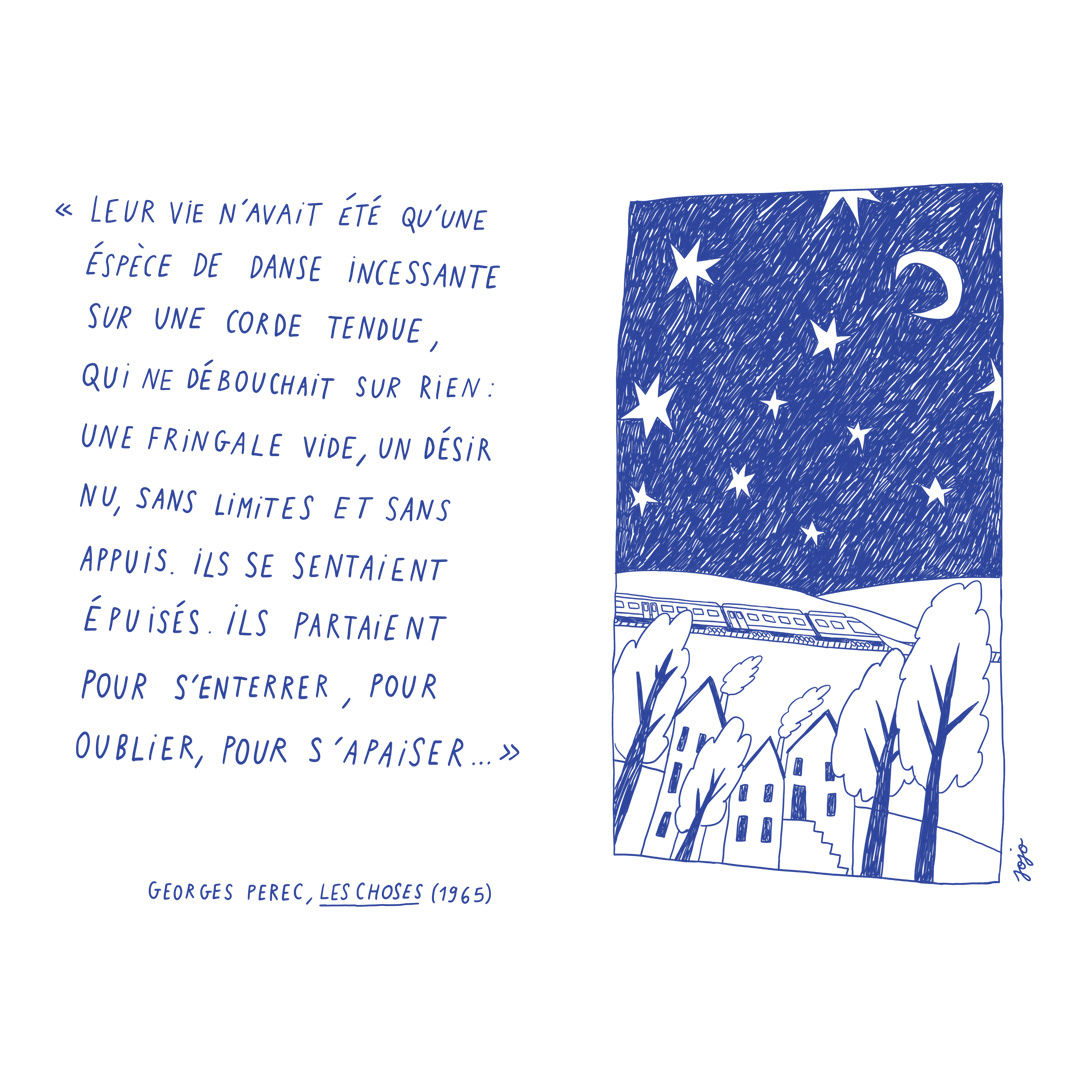 « LEUR ViE N'AVAiT ÉTÉ QU'UNE
ÉSPÈCE DE DANSE iNCESSANTE
SUR UNE CORDE TENDUE,
QUi NE DÉBOUCHAiT SUR RiEN :
UNE FRiNGALE ViDE, UN DÉSiR
NU, SANS LiMiTES ET SANS
APPUiS. iLS SE SENTAiENT
ÉPUiSÉS. iLS PARTAiENT
POUR S'ENTERRER, POUR
OUBLiER, POUR S'APAiSER...»
GEORGES PEREC, LES CHOSES (1965)
jojo